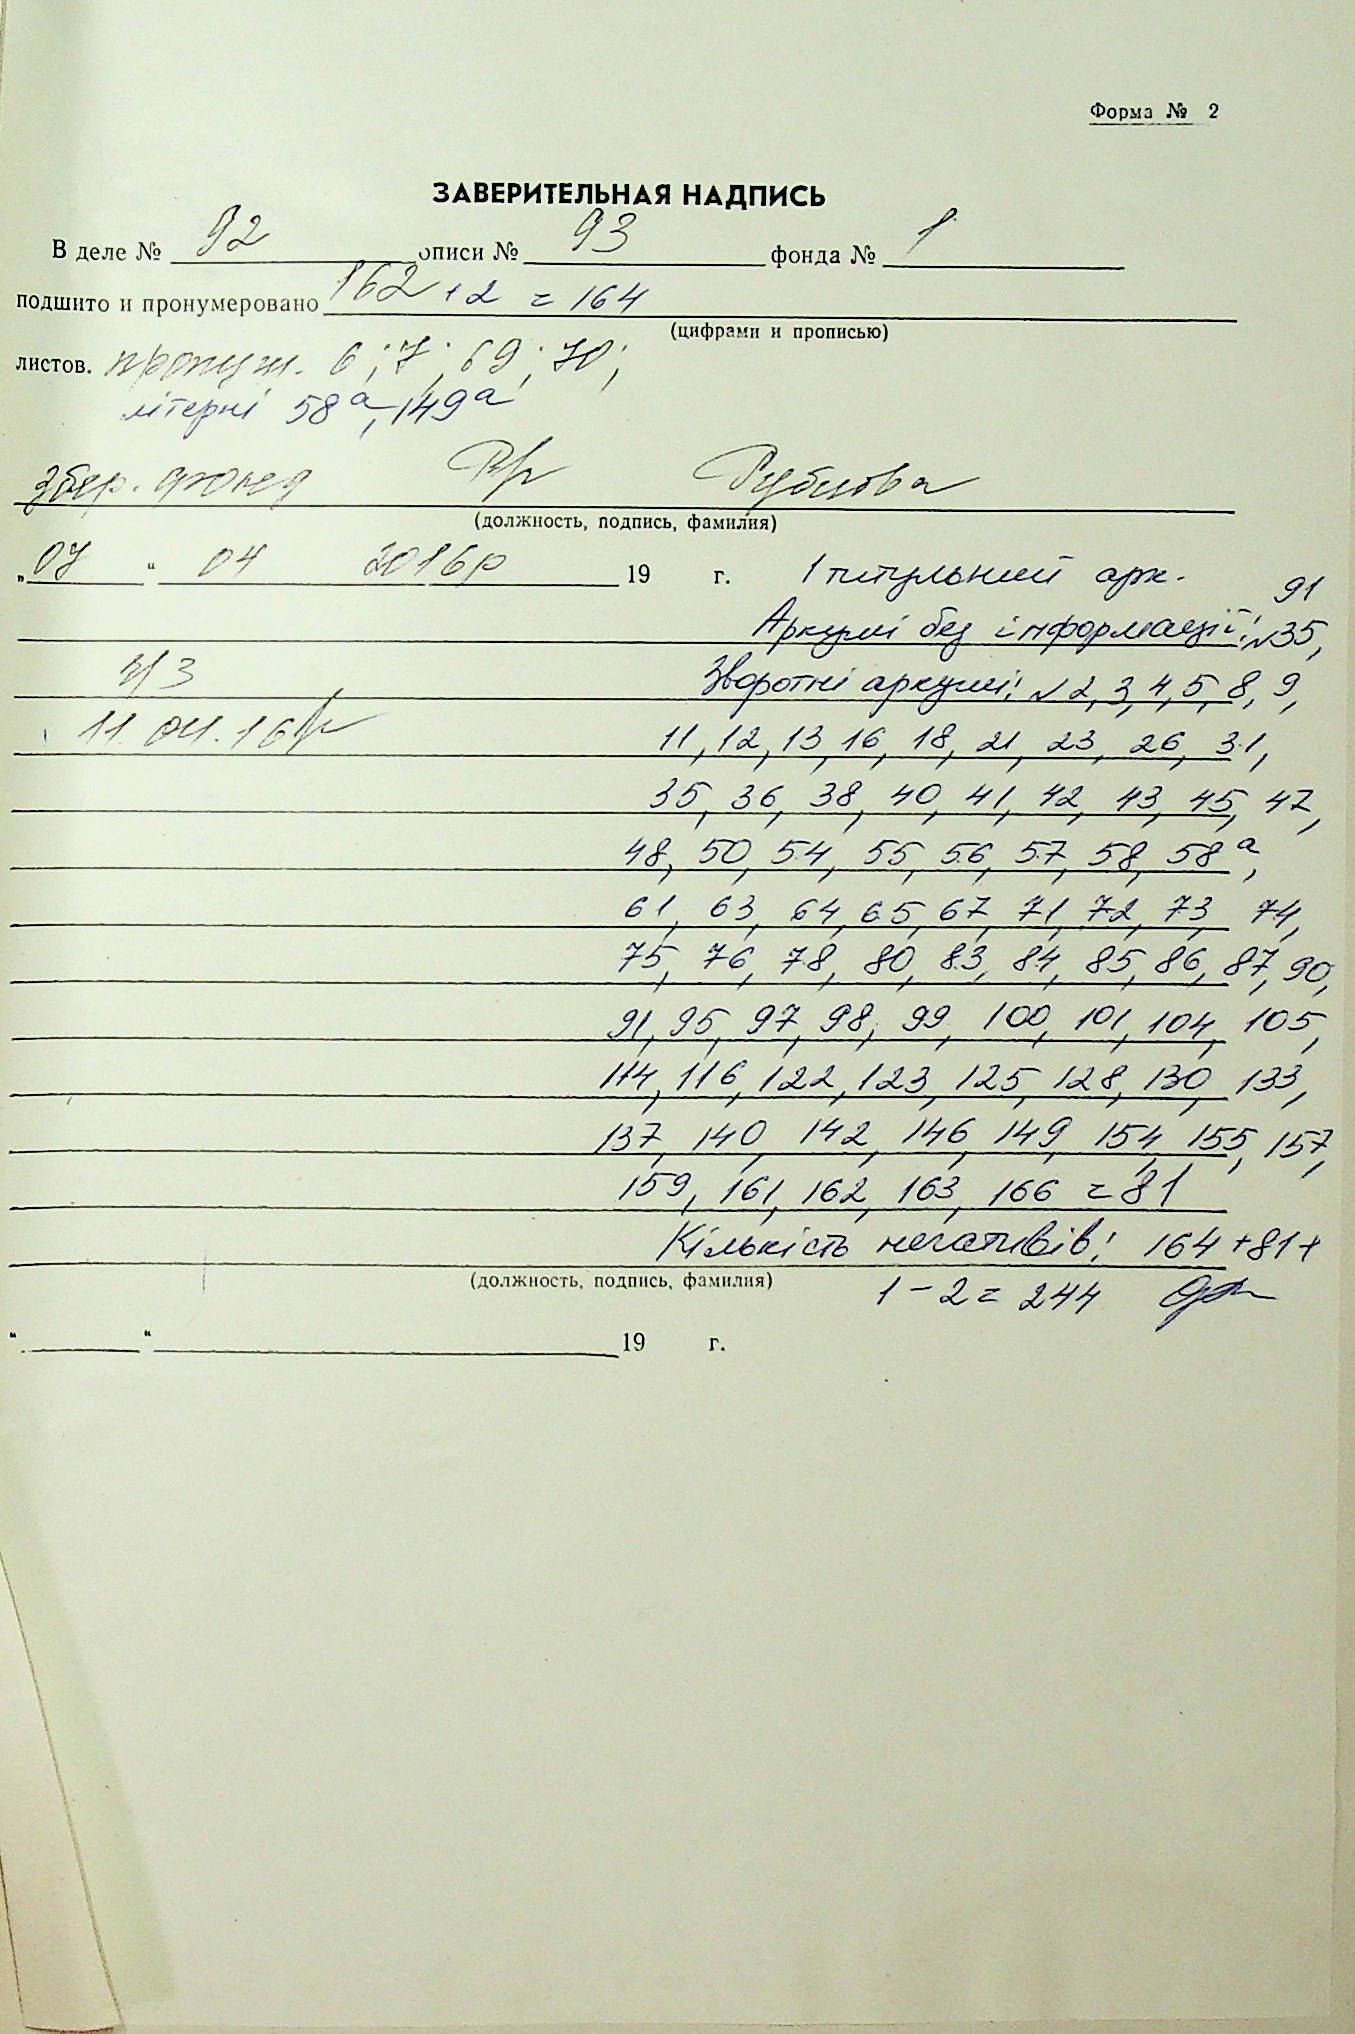 Форма № 2
ЗАВЕРИТЕЛЬНАЯ НАДПИСЬ
В деле № 92 описи № 93 фонда № 1
подшито и пронумеровано 162 + 2 = 164
(цифрами и прописью)
листов. пропущ. 6; 7; 69; 70;
літерні 58а, 149а
збер. фонд Рубцова
(должность, подпись, фамилия)
„07“ 04 2016р 19 г. 1 титульний арк.
Аркуші без інформації: №35, 91
Зворотні аркуші: №2, 3, 4, 5, 8, 9,
11.04.16
11, 12, 13, 16, 18, 21, 23, 26, 31,
35, 36, 38, 40, 41, 42, 43, 45, 47,
48, 50, 54, 55, 56, 57, 58, 58а,
61, 63, 64, 65, 67, 71, 72, 73, 74,
75, 76, 78, 80, 83, 84, 85, 86, 87, 90,
91, 95, 97, 98, 99, 100, 101, 104, 105,
114, 116, 122, 123, 125, 128, 130, 133,
137, 140, 142, 146, 149, 154, 155, 157,
159, 161, 162, 163, 166 = 81
Кількість негативів: 164 + 81 +
(должность, подпись, фамилия)
1 – 2 = 244
“ “ 19 г.